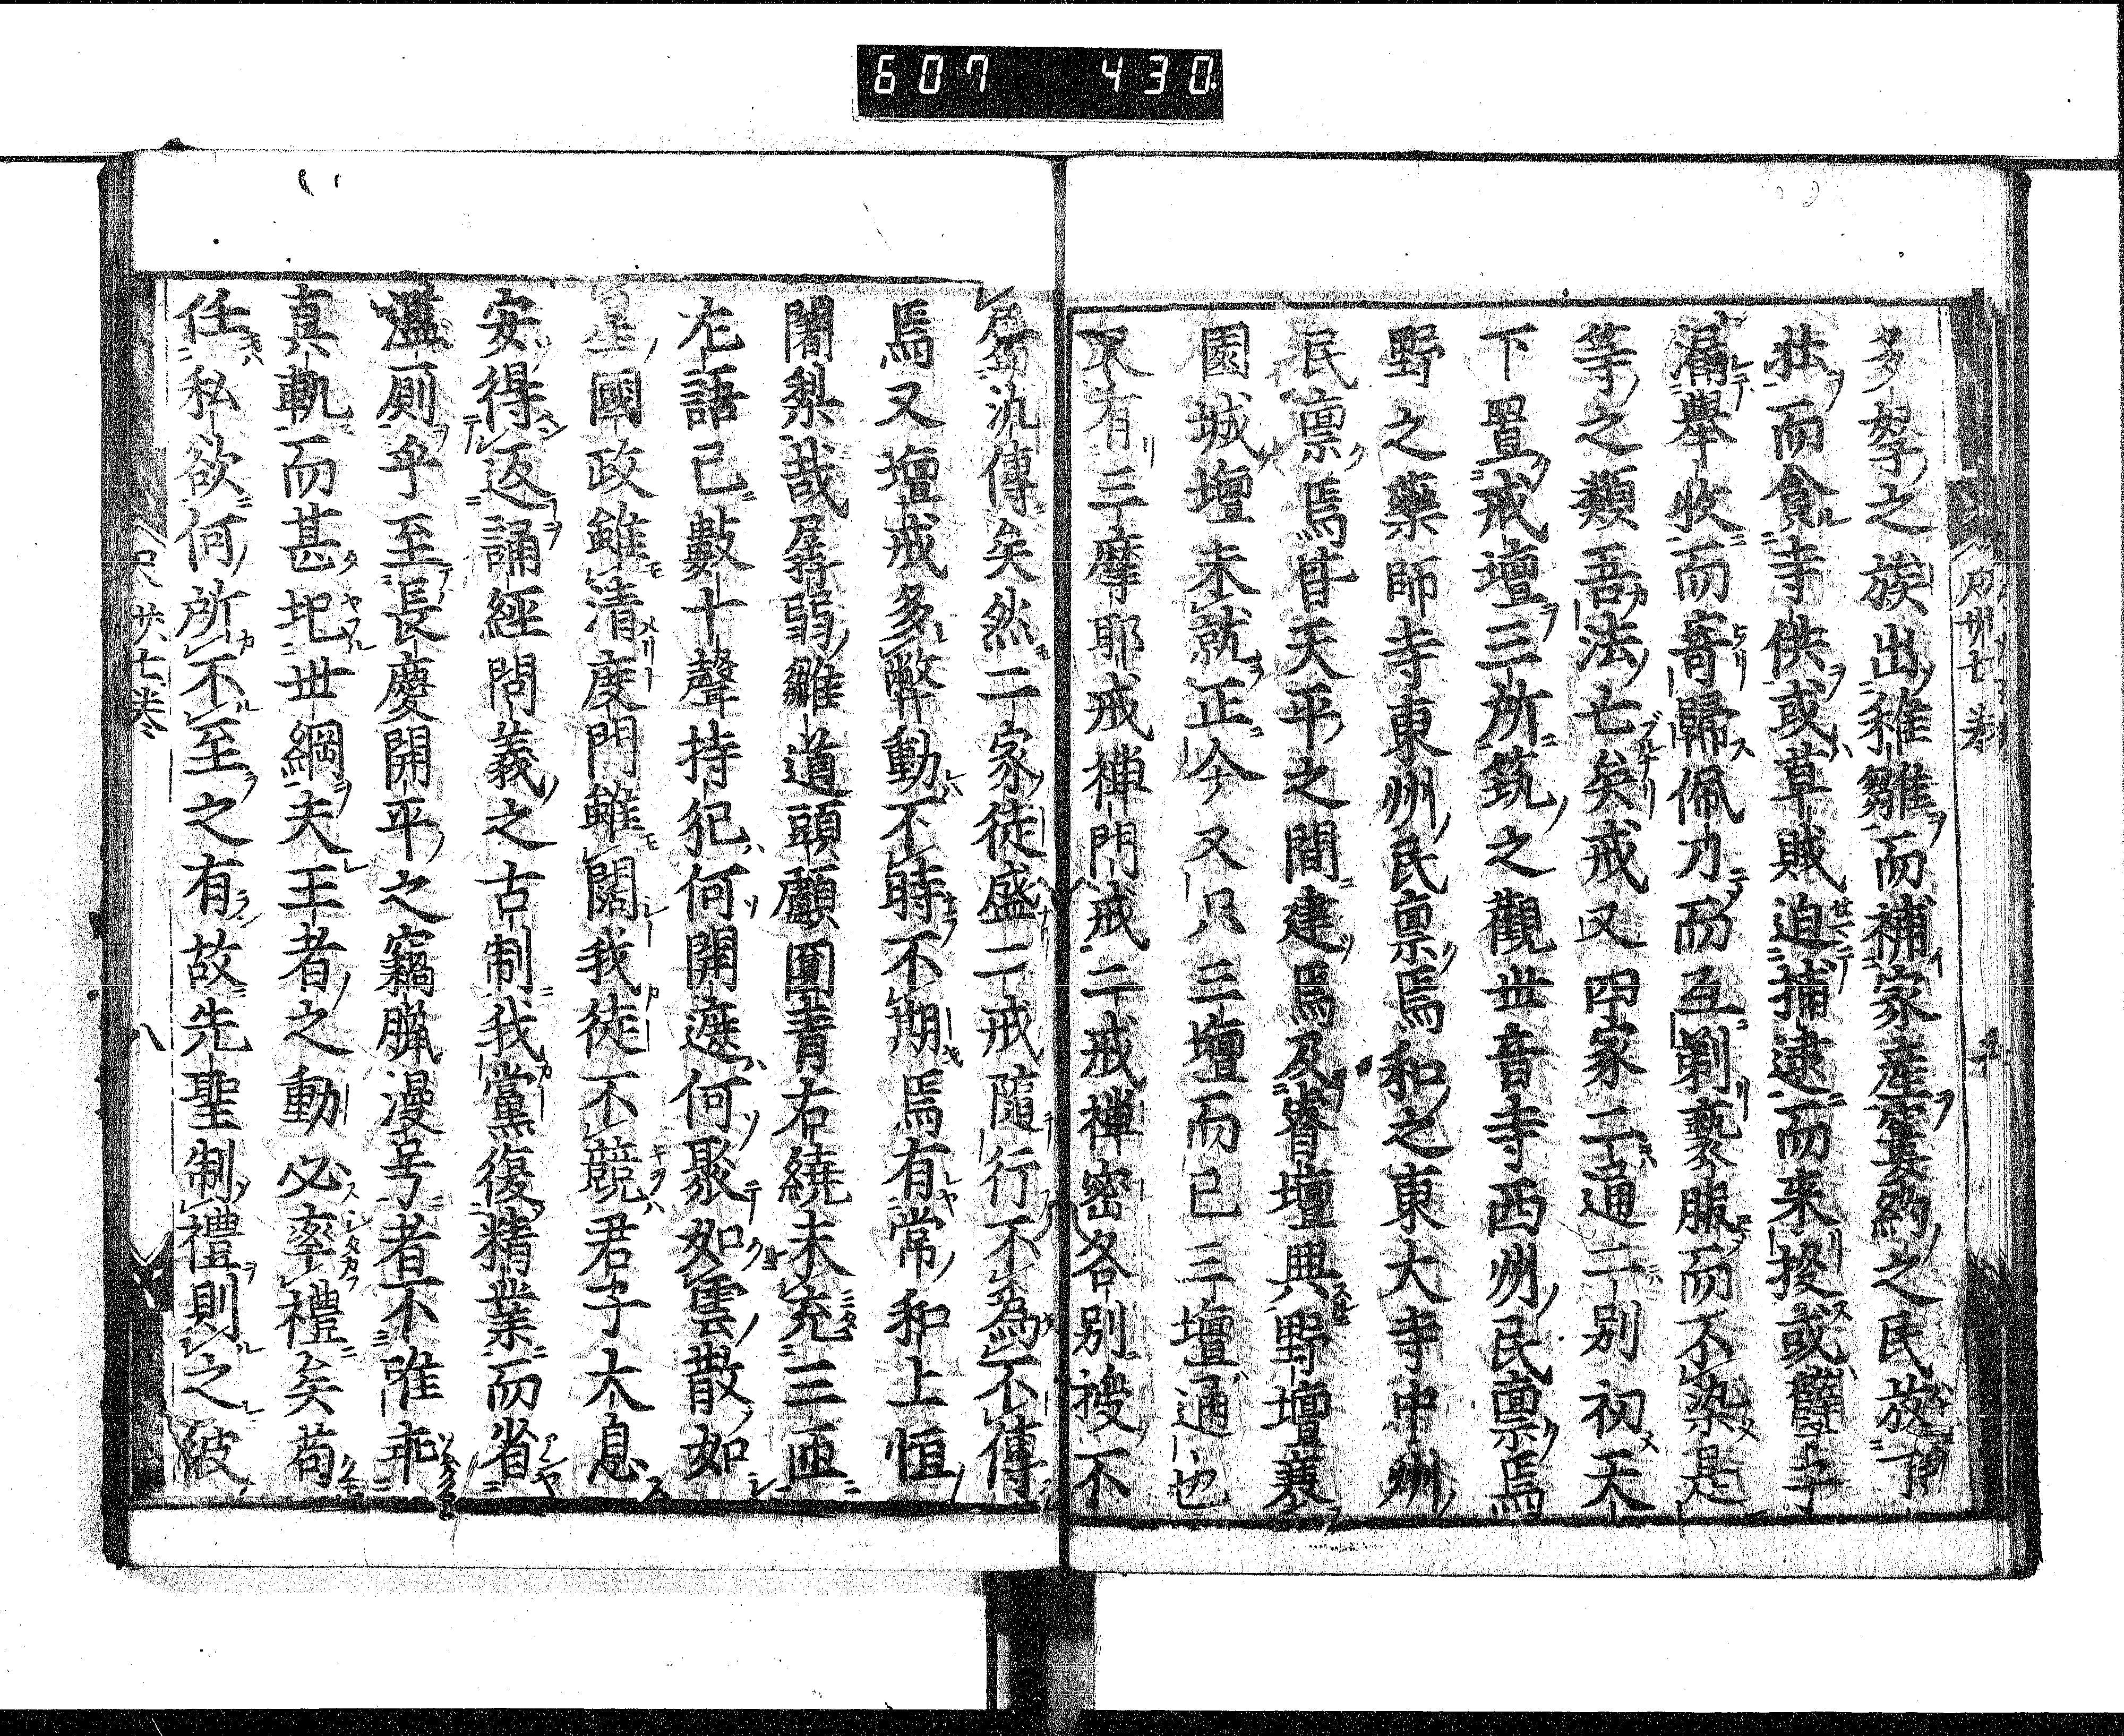 607 430
多孥之族出稚雛而補家產窶約之民放丁
壯而貪寺供或草賊迫捕逮而来投或孽子
漏舉收而寄歸佩刀而互剃褻服而不染是
等之類吾法亡矣戒又四家二通二別初天
下置戒壇三所筑之觀世音寺西州民禀焉
野之藥師寺東州民禀焉和之東大寺中州
民禀焉昔天平之間建焉及睿壇興野壇衰
園城壇未就正今又只三壇而已三壇通也
又有三摩耶戒禅門戒二戒禅密各別授不
氿傳矣然二家徒盛二戒隨行不為不傳
焉又壇戒多弊動不時不期焉有常和上恒
闍梨哉孱弱雛道頭顱圓青右繞未充三匝
左語已數十聲持犯何開遮何聚如雲散如
星國政雖清度門雖闊我徒不競君子大息
安得返誦經問義之古制我黨復精業而省
濫厠乎至長慶開平之竊臘漫号者不唯乖
真軌而甚圯世綱夫王者之動必率禮矣苟
任私欲何所不至之有故先聖制禮則之破
廿七巻
八